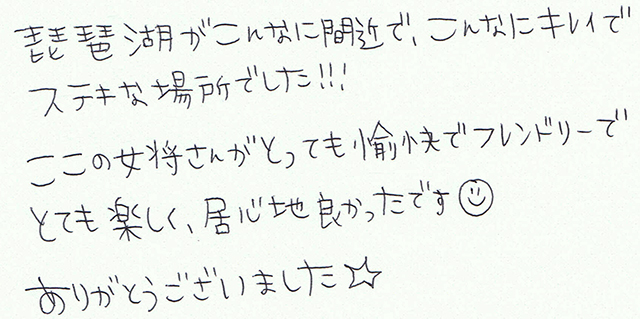 琵琶湖がこんなに間近で、こんなにキレイで
ステキな場所でした!!!
ここの女将さんがとっても愉快でフレンドリーで
とても楽しく、居心地良かったです☺
ありがとうございました☆